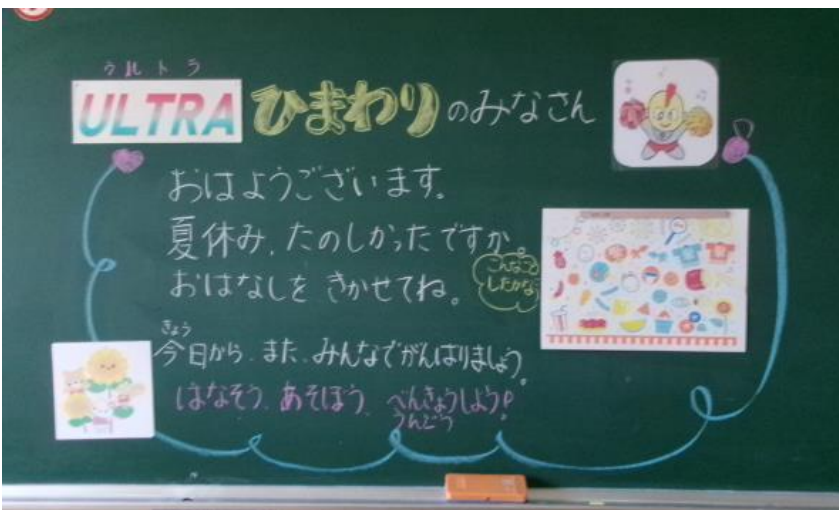 ウルトラ
ULTRA ひまわりのみなさん
おはようございます。
夏休み、たのしかったですか。
おはなしを きかせてね。
こんなこと
したかな
きょう
今日から、また、みんなでがんばりましょう。
はなそう、あそぼう、べんきょうしよう!
うんどう